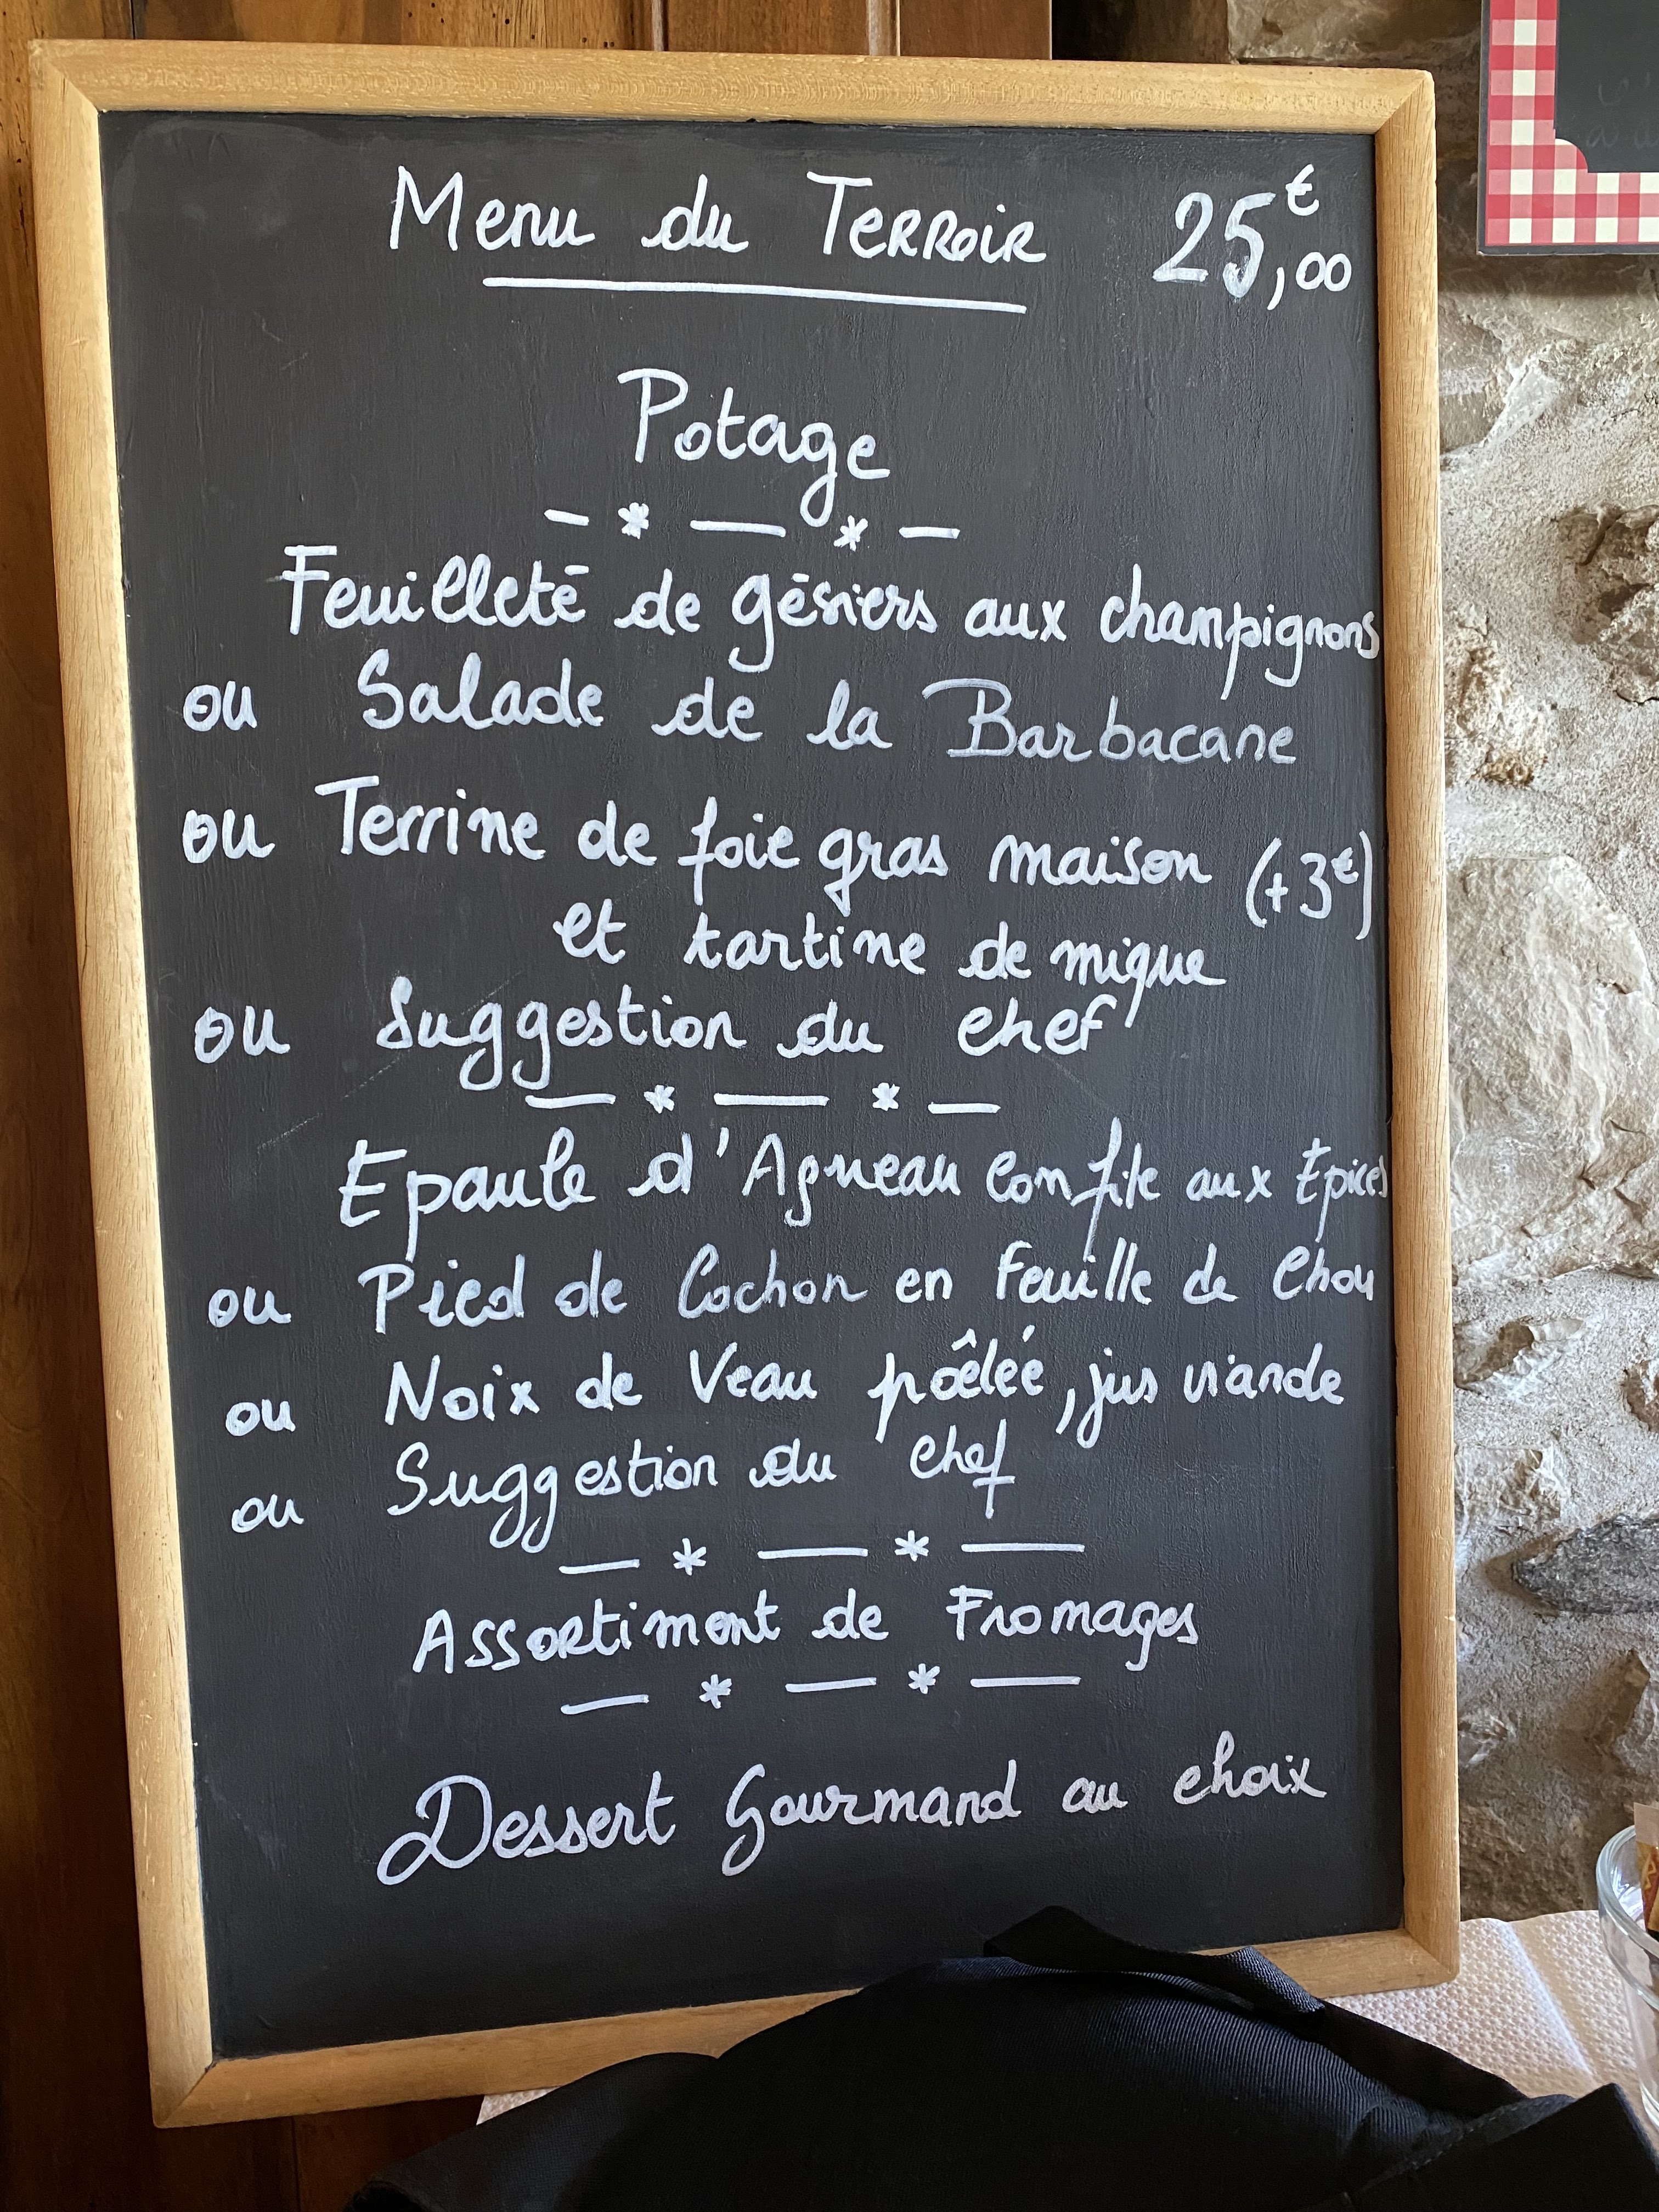 Menu du Terroir 25,00€
Potage
— * — * —
Feuilleté de gésiers aux champignons
ou Salade de la Barbacane
ou Terrine de foie gras maison (+3€)
et tartine de mique
ou Suggestion du chef
— * — * —
Epaule d'Agneau confite aux Epices
ou Pied de Cochon en Feuille de Chou
ou Noix de Veau pôêlée, jus viande
ou Suggestion du chef
— * — * —
Assortiment de Fromages
— * — * —
Dessert Gourmand au choix